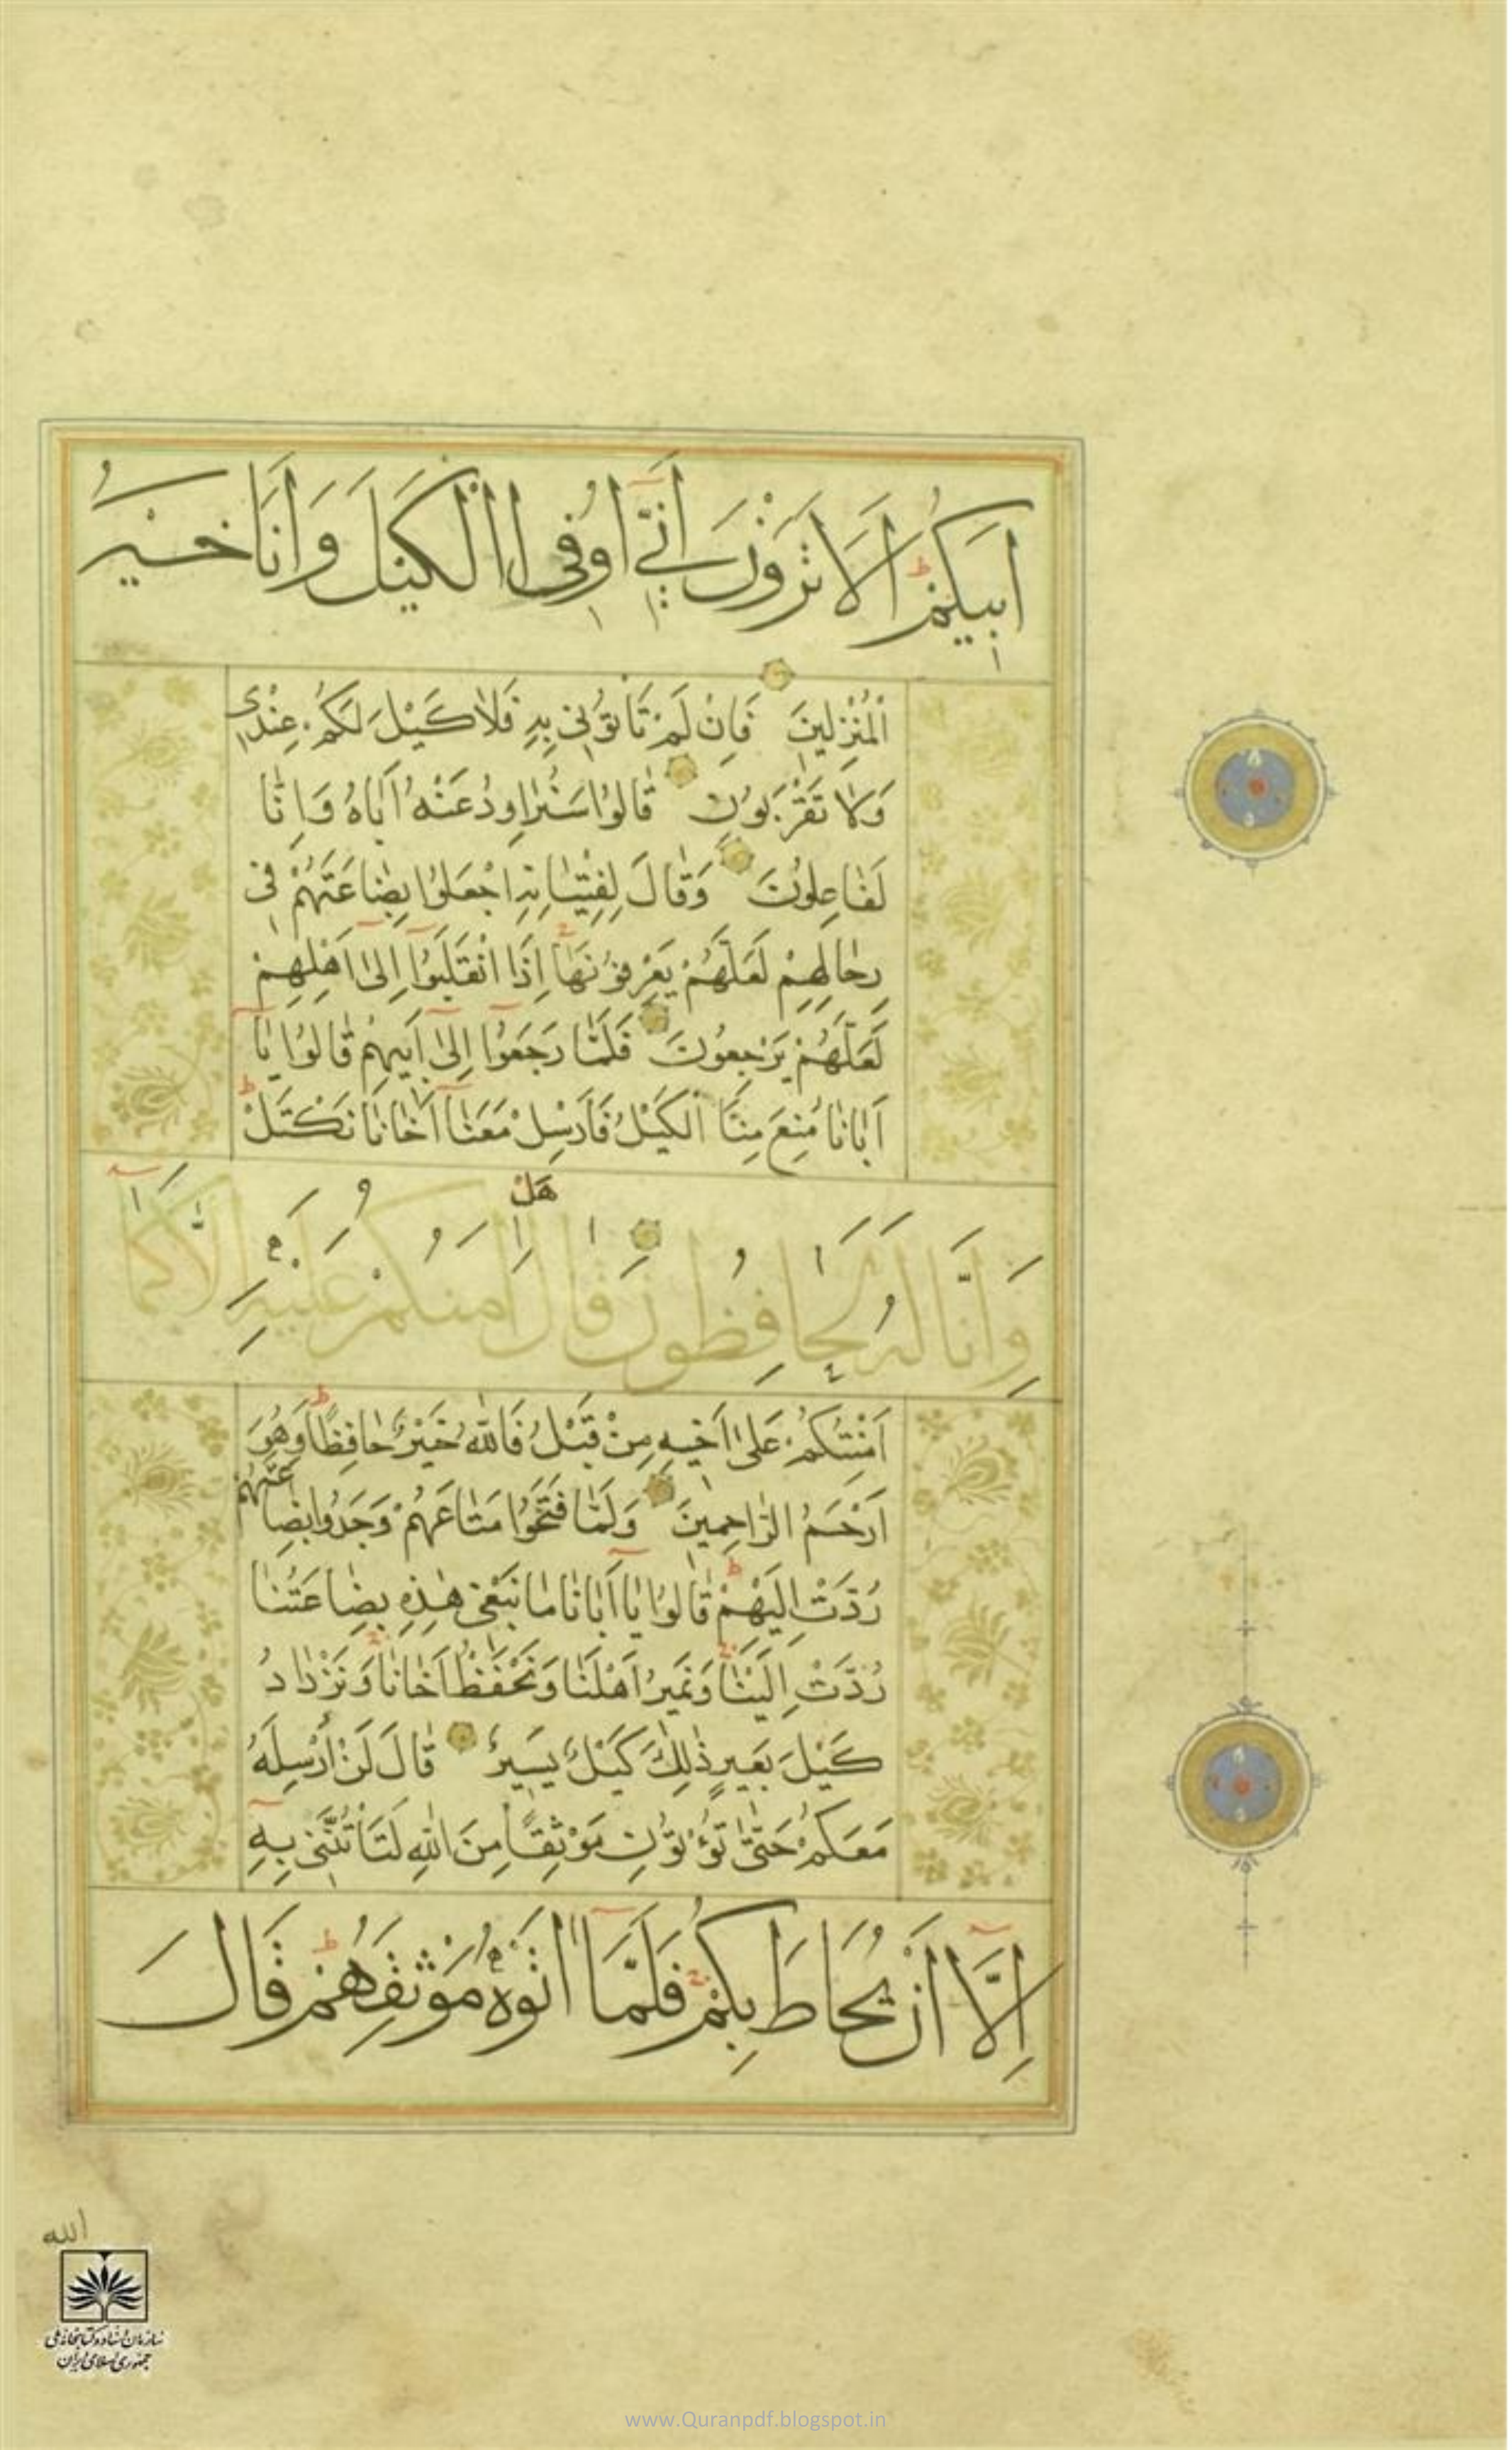 اَبيكُمْ اَلَا تَرَوْنَ اَنّىٓ اُوفِى الْكَيْلَ وَاَنَا خَيْرُ
الْمُنْزِلينَ فَاِنْ لَمْ تَاْتُونى بِهِ فَلَا كَيْلَ لَكُمْ عِنْدى
وَلَا تَقْرَبُونِ قَالُوا سَنُرَاوِدُ عَنْهُ اَبَاهُ وَاِنَّا
لَفَاعِلُونَ وَقَالَ لِفِتْيَانِهِ اجْعَلُوا بِضَاعَتَهُمْ فى
رِحَالِهِمْ لَعَلَّهُمْ يَعْرِفُونَهَا اِذَا انْقَلَبُوٓا اِلىٰٓ اَهْلِهِمْ
لَعَلَّهُمْ يَرْجِعُونَ فَلَمَّا رَجَعُوٓا اِلىٰٓ اَبيهِمْ قَالُوا يَآ
اَبَانَا مُنِعَ مِنَّا الْكَيْلُ فَاَرْسِلْ مَعَنَآ اَخَانَا نَكْتَلْ
هَلْ
وَاِنَّا لَهُ لَحَافِظُونَ قَالَ اٰمَنُكُمْ عَلَيْهِ اِلَّا كَمَآ
اَمِنْتُكُمْ عَلىٰٓ اَخيهِ مِنْ قَبْلُ فَاللّٰهُ خَيْرٌ حَافِظًا وَهُوَ
اَرْحَمُ الرَّاحِمينَ وَلَمَّا فَتَحُوا مَتَاعَهُمْ وَجَدُوا بِضَاعَتَهُمْ
رُدَّتْ اِلَيْهِمْ قَالُوا يَآ اَبَانَا مَا نَبْغى هٰذِهِ بِضَاعَتُنَا
رُدَّتْ اِلَيْنَا وَنَميرُ اَهْلَنَا وَنَحْفَظُ اَخَانَا وَنَزْدَادُ
كَيْلَ بَعيرٍ ذٰلِكَ كَيْلٌ يَسيرٌ قَالَ لَنْ اُرْسِلَهُ
مَعَكُمْ حَتّٰى تُؤْتُونِ مَوْثِقًا مِنَ اللّٰهِ لَتَاْتُنَّنى بِهٓ
اِلَّآ اَنْ يُحَاطَ بِكُمْ فَلَمَّآ اٰتَوْهُ مَوْثِقَهُمْ قَالَ
الله
سازمان اسناد و کتابخانه ملی
جمهوری اسلامی ایران
www.Quranpdf.blogspot.in